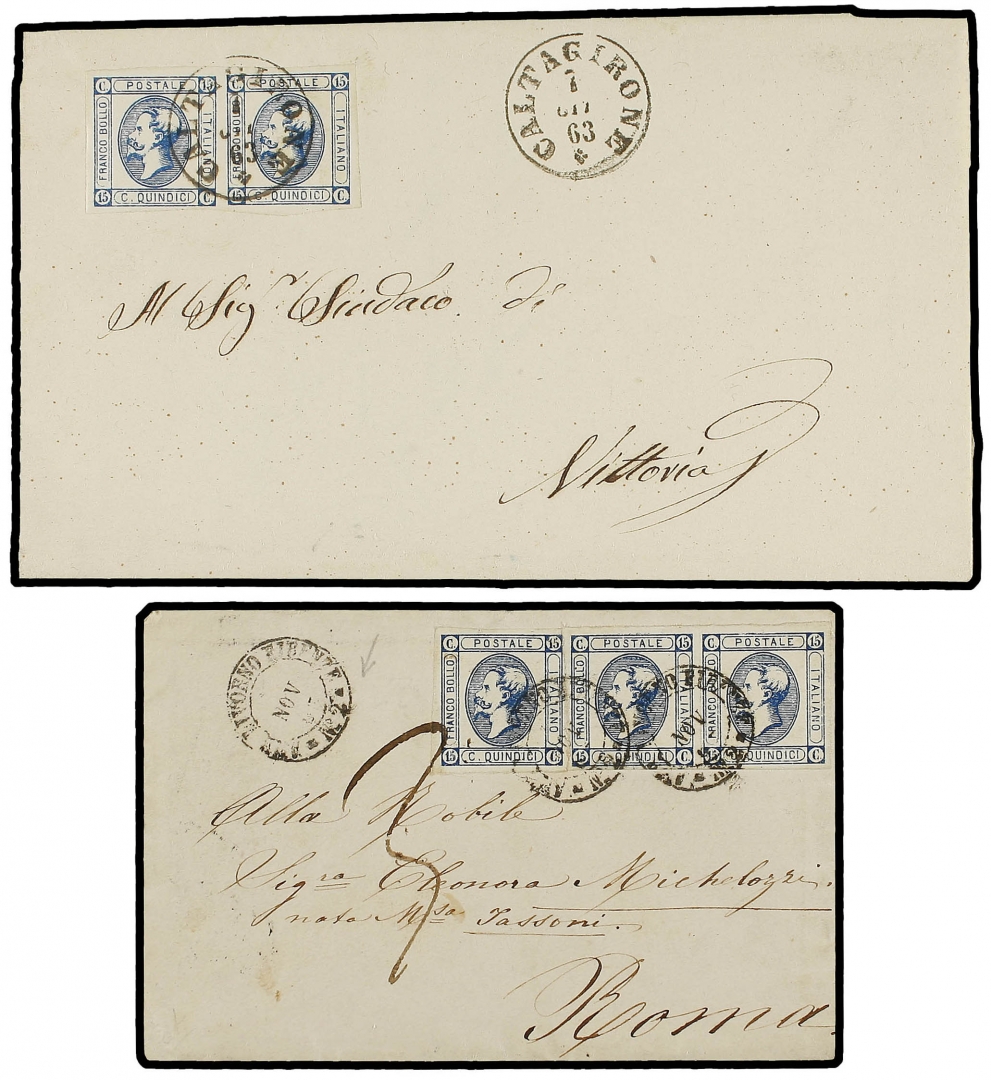 C. POSTALE 15 C. POSTALE 15
FRANCO BOLLO ITALIANO FRANCO BOLLO ITALIANO
15 C. QUINDICI C. 15 C. QUINDICI C.
CALTAGIRONE
63
CALTAGIRONE
7
GIU
63
Al Sigr Sindaco di
Vittoria
LIVORNO FIRENZE
NOV
C. POSTALE 15 C. POSTALE 15 C. POSTALE 15
FRANCO BOLLO ITALIANO FRANCO BOLLO ITALIANO FRANCO BOLLO ITALIANO
15 C. QUINDICI C. 15 C. QUINDICI C. 15 C. QUINDICI C.
NOV
3
Alla Nobile
Sigra Eleonora Michelozzi
nata Msa Tassoni.
Roma